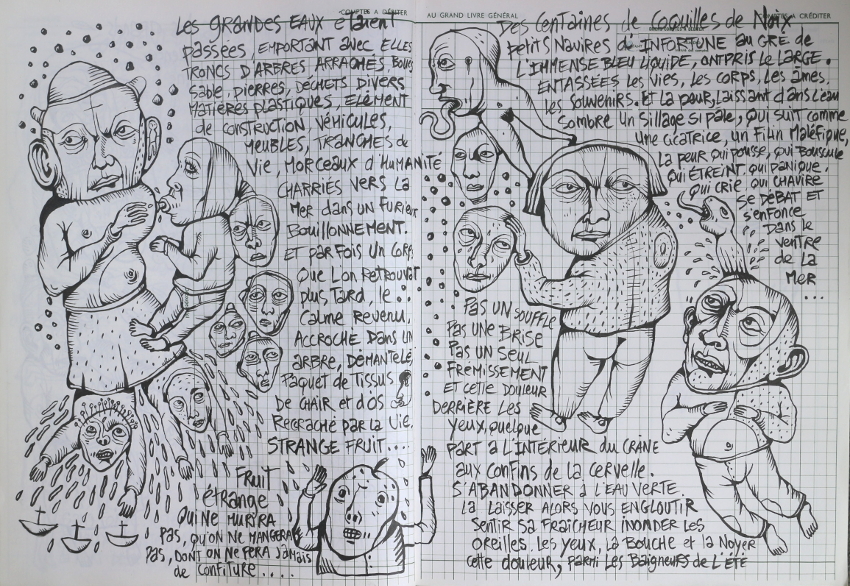 COMPTES A DÉBITER
Les GRANDES EAUX étaient
passées, EMPORTANT avec ELLES
TRONCS D'ARBRES ARRACHÉS, Boue
Sable, pierres, DÉCHETS DIVERS
MATIÈRES PLASTIQUES, ELÉMENT
de CONSTRUCTION, VÉHICULES,
MEUBLES, TRANCHES de
Vie, MORCEAUX d'HUMANITÉ
CHARRIÉS VERS LA
Mer dans un FURIEUX
BOUILLONNEMENT.
ET PARFOIS UN CORPS
Que L'on RETROUVAIT
plus TARD, le
Calme Revenu,
ACCROCHÉ DANS UN
ARBRE, DÉMANTELÉ,
Paquet de TISSUS
DE CHAIR et d'OS
RECRACHÉ PAR la Vie.
STRANGE FRUIT...
FRUIT
étrange
QUI NE MURIRA
PAS, QU'ON NE MANGERA
PAS, DONT ON NE FERA JAMAIS
de CONFITURE....
AU GRAND LIVRE GÉNÉRAL
CRÉDITER
Des Centaines de Coquilles de Noix
Petits Navires d'INFORTUNE au GRÉ de
L'IMMENSE BLEU LIQUIDE, ONT PRIS LE LARGE.
ENTASSÉES les Vies, les CORPS, les âmes,
les SOUVENIRS. ET la peur, LAISSANT dans L'eau
SOMBRE un SILLAGE SI pâle, QUI SUIT comme
une CICATRICE, un FILIN MALÉFIQUE,
la peur qui pousse, qui BOUSCULE
QUI ÉTREINT, qui PANIQUE,
qui CRIE qui CHAVIRE
se DÉBAT ET
s'enfonce
Dans le
VENTRE
de LA
MER
...
PAS UN SOUFFLE
PAS UNE BRISE
PAS UN SEUL
FRÉMISSEMENT
ET cette DOULEUR
DERRIÈRE LES
yeux, quelque
PART à L'INTÉRIEUR du CRÂNE
aux CONFINS de la CERVELLE.
S'ABANDONNER à L'EAU VERTE.
LA LAISSER ALORS VOUS ENGLOUTIR
SENTIR SA FRAÎCHEUR INONDER LES
OREILLES, les YEUX, LA BOUCHE et la NOYER
cette douleur, PARMI Les BAIGNEURS de L'ÉTÉ